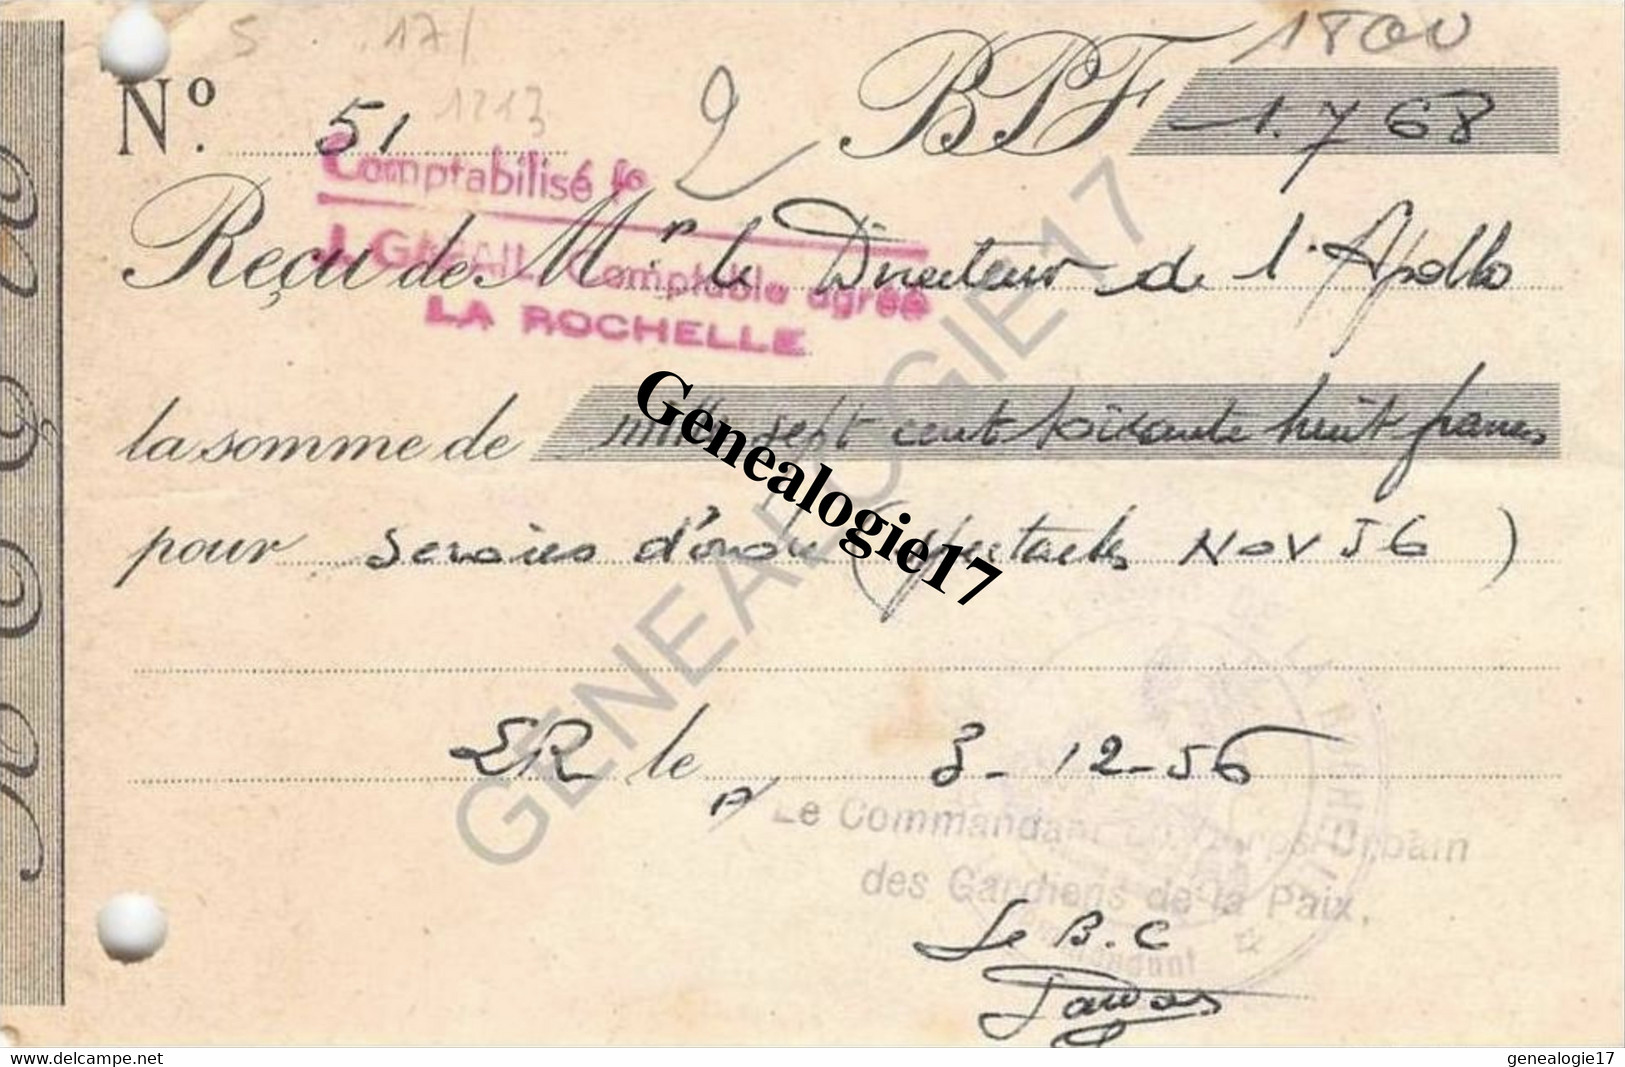 5 . 171
1800
Nº. 51 1213 2 BPF 1.768
Comptabilisé fo
Reçu de Mr. le Directeur de l'Apollo
Comptable agréé
LA ROCHELLE
la somme de mille sept cent soixante huit francs
pour services d'ordre (spectacles Nov 56)
LR le 3-12-56
Le Commandant du Corps Urbain
des Gardiens de la Paix,
Le B.C
REÇU
GENEALOGIE17
Genealogie17
www.delcampe.net genealogie17